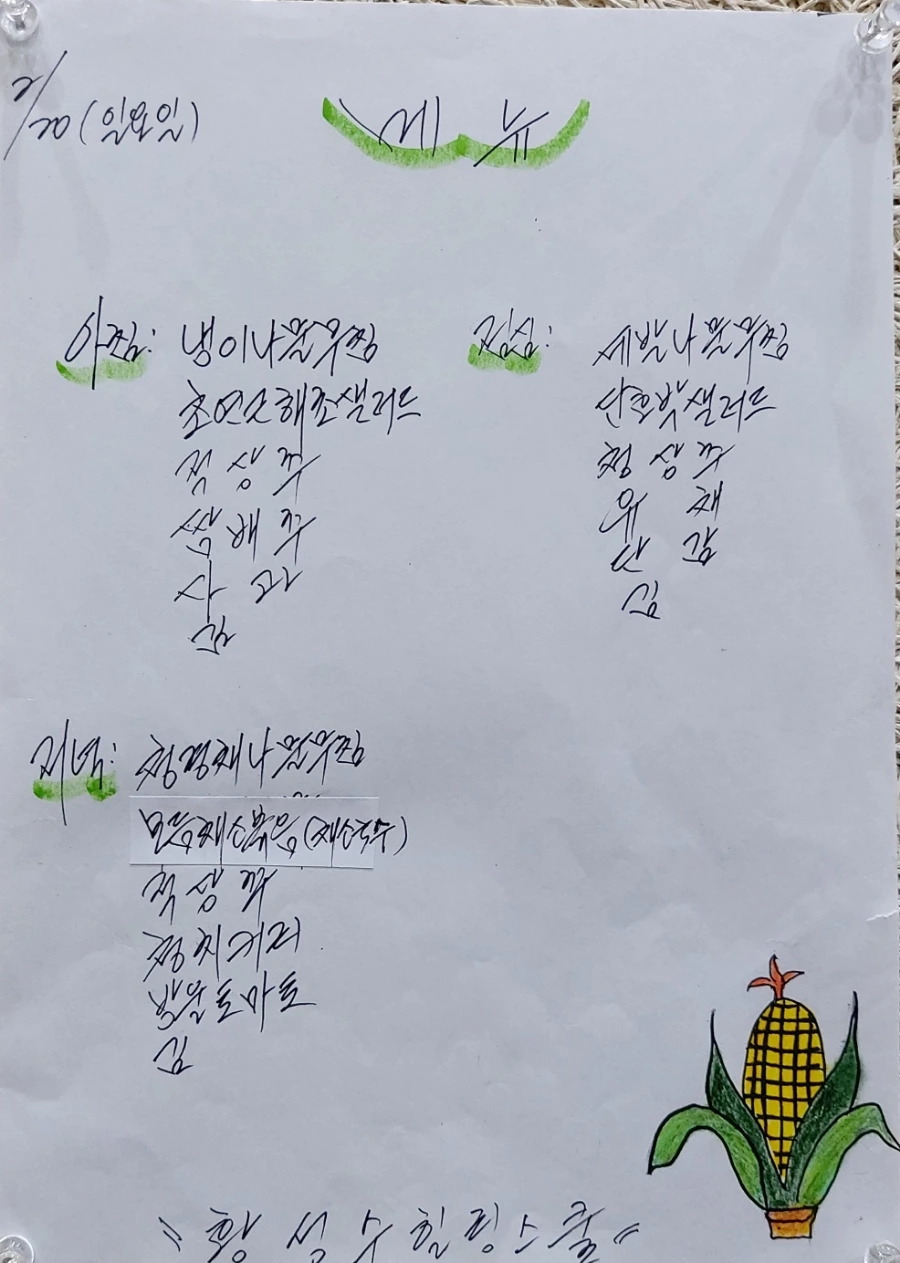 2/20 (일요일)
메 뉴
아침: 냉이나물무침
초연근해초샐러드
적상추
쌈배추
사과
김
점심: 세발나물무침
단호박샐러드
청상추
유채
단감
김
저녁: 청경채나물무침
모듬채소볶음(채소국수)
적상추
청치커리
방울토마토
김
"황성수힐링스쿨"